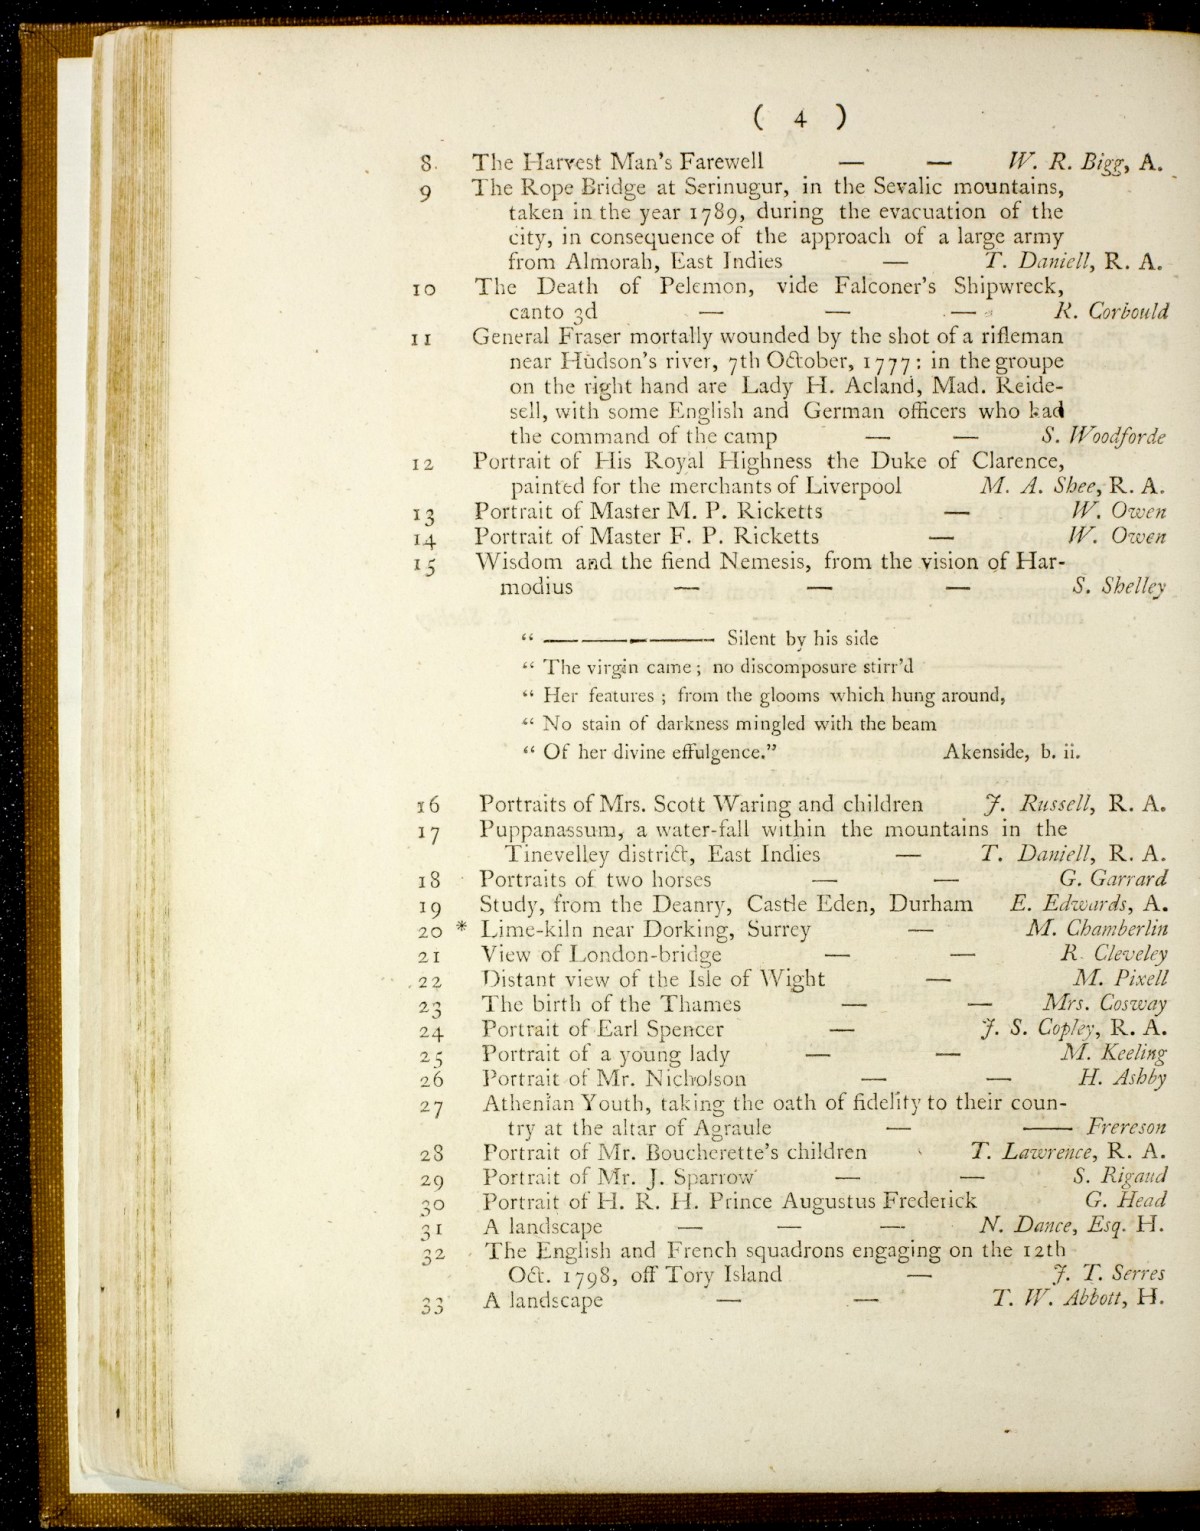 ( 4 )
8 The Harvest Man's Farewell — — W. R. Bigg, A.
9 The Rope Bridge at Serinugur, in the Sevalic mountains,
taken in the year 1789, during the evacuation of the
city, in consequence of the approach of a large army
from Almorah, East Indies — T. Daniell, R. A.
10 The Death of Pelemon, vide Falconer's Shipwreck,
canto 3d — — — R. Corbould
11 General Fraser mortally wounded by the shot of a rifleman
near Hudson's river, 7th October, 1777: in the groupe
on the right hand are Lady H. Acland, Mad. Reide-
sell, with some English and German officers who had
the command of the camp — — S. Woodforde
12 Portrait of His Royal Highness the Duke of Clarence,
painted for the merchants of Liverpool M. A. Shee, R. A.
13 Portrait of Master M. P. Ricketts — W. Owen
14 Portrait of Master F. P. Ricketts — W. Owen
15 Wisdom and the fiend Nemesis, from the vision of Har-
modius — — — S. Shelley
" ————— Silent by his side
" The virgin came; no discomposure stirr'd
" Her features; from the glooms which hung around,
" No stain of darkness mingled with the beam
" Of her divine effulgence." Akenside, b. ii.
16 Portraits of Mrs. Scott Waring and children J. Russell, R. A.
17 Puppanassum, a water-fall within the mountains in the
Tinevelley district, East Indies — T. Daniell, R. A.
18 Portraits of two horses — — G. Garrard
19 Study, from the Deanry, Castle Eden, Durham E. Edwards, A.
20 * Lime-kiln near Dorking, Surrey — M. Chamberlin
21 View of London-bridge — — R. Cleveley
22 Distant view of the Isle of Wight — M. Pixell
23 The birth of the Thames — — Mrs. Cosway
24 Portrait of Earl Spencer — J. S. Copley, R. A.
25 Portrait of a young lady — — M. Keeling
26 Portrait of Mr. Nicholson — — H. Ashby
27 Athenian Youth, taking the oath of fidelity to their coun-
try at the altar of Agraule — —— Frereson
28 Portrait of Mr. Boucherette's children T. Lawrence, R. A.
29 Portrait of Mr. J. Sparrow — — S. Rigaud
30 Portrait of H. R. H. Prince Augustus Frederick G. Head
31 A landscape — — — N. Dance, Esq. H.
32 The English and French squadrons engaging on the 12th
Oct. 1798, off Tory Island — J. T. Serres
33 A landscape — — T. W. Abbott, H.